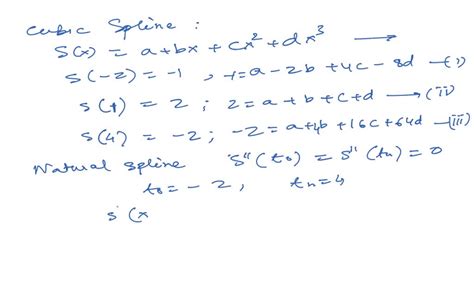 Cubic Spline :
S(x) = a+bx + cx² + dx³ →
S(-2) = -1 , -1=a - 2b + 4c - 8d —(i)
S(1) = 2 ; 2 = a + b + c + d → (ii)
S(4) = -2 ; -2 = a+4b +16c +64d —(iii)
Natural spline S"(t₀) = S"(tn) = 0
t₀ = -2 , tn = 4
s (x